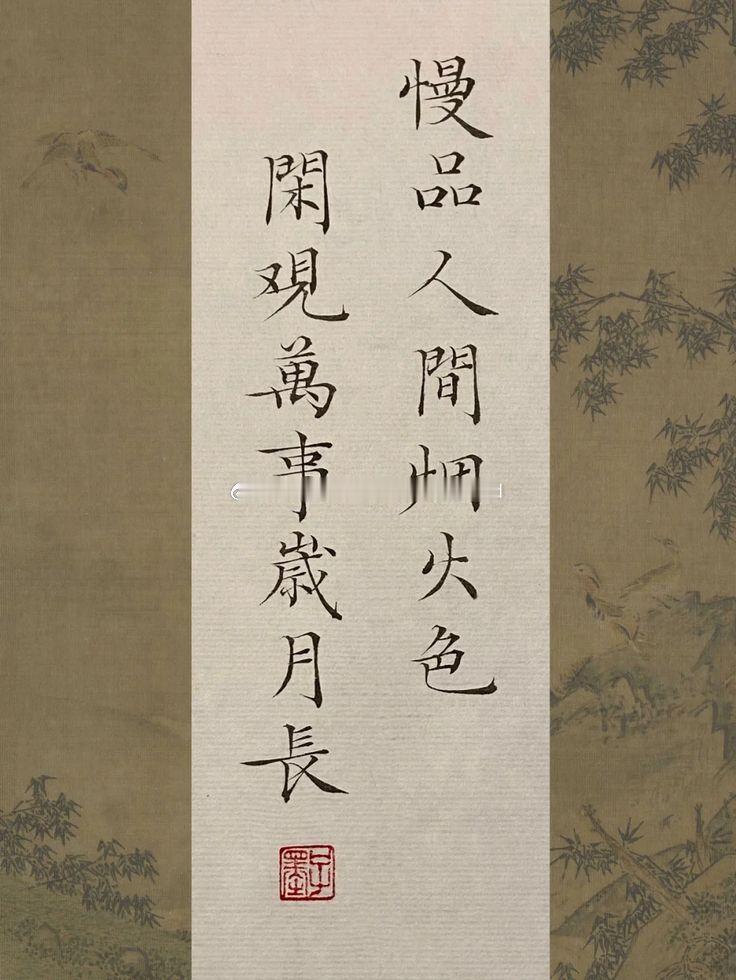 慢品人間烟火色
閑觀萬事歲月長